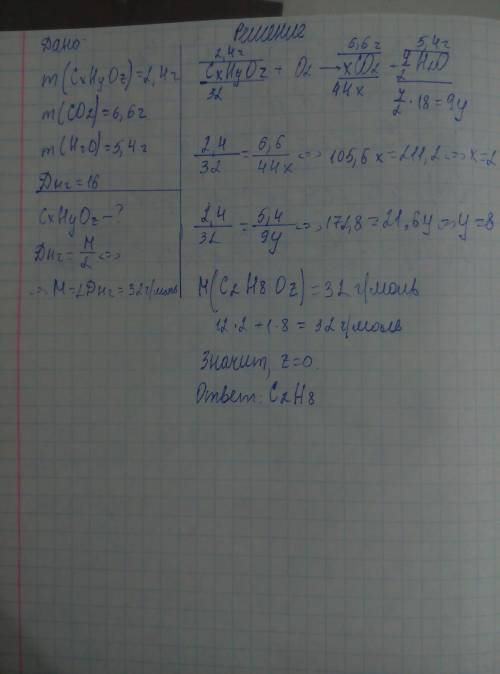 Дано
m(CxHyOz)=2,4г
m(CO2)=6,6г
m(H2O)=5,4г
DH2=16
CxHyOz-?
DH2=M/2 <=>
<=> M=2DH2=32г/моль
Решение
2,4г 6,6г 5,4г
CxHyOz + O2 → xCO2 + y/2 H2O
32 44x y/2·18=9y
2,4/32=6,6/44x <=> 105,6x=211,2 <=> x=2
2,4/32=5,4/9y <=> 172,8=21,6y <=> y=8
M(C2H8Oz)=32г/моль
12·2+1·8=32г/моль
Значит, z=0.
Ответ: C2H8